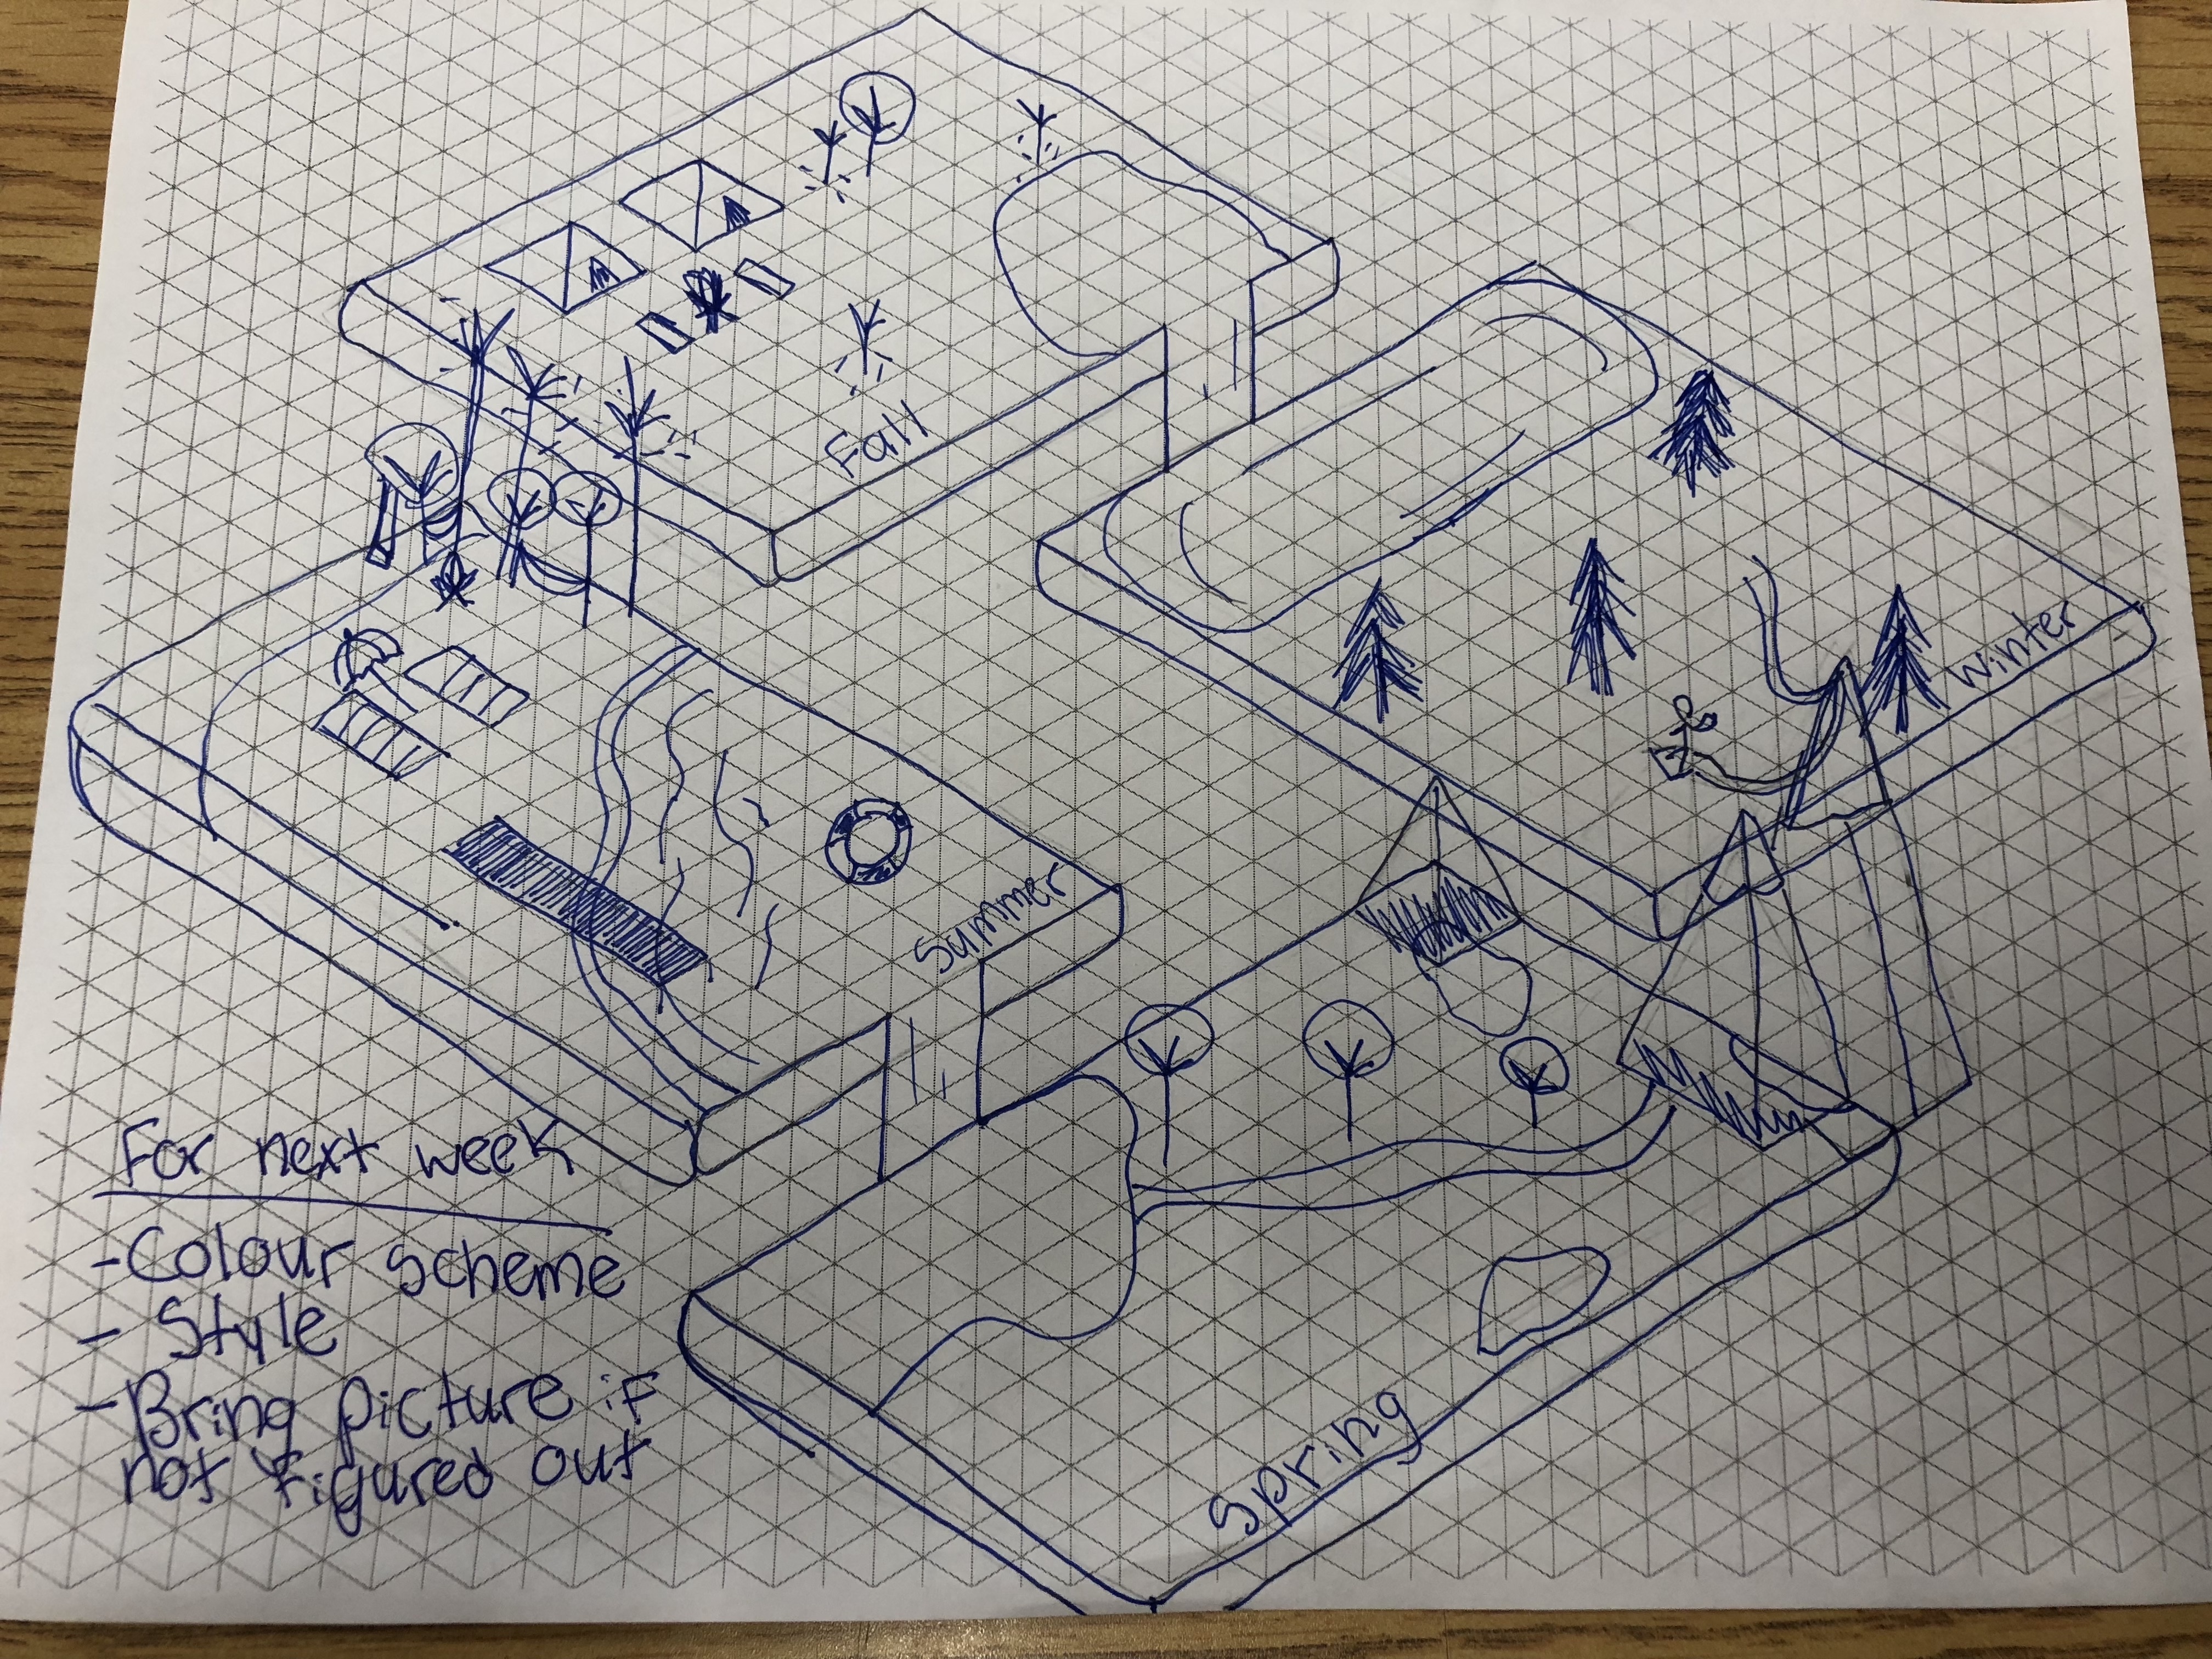 Fall
Winter
Summer
Spring
For next week
- Colour scheme
- Style
- Bring picture if
not figured out